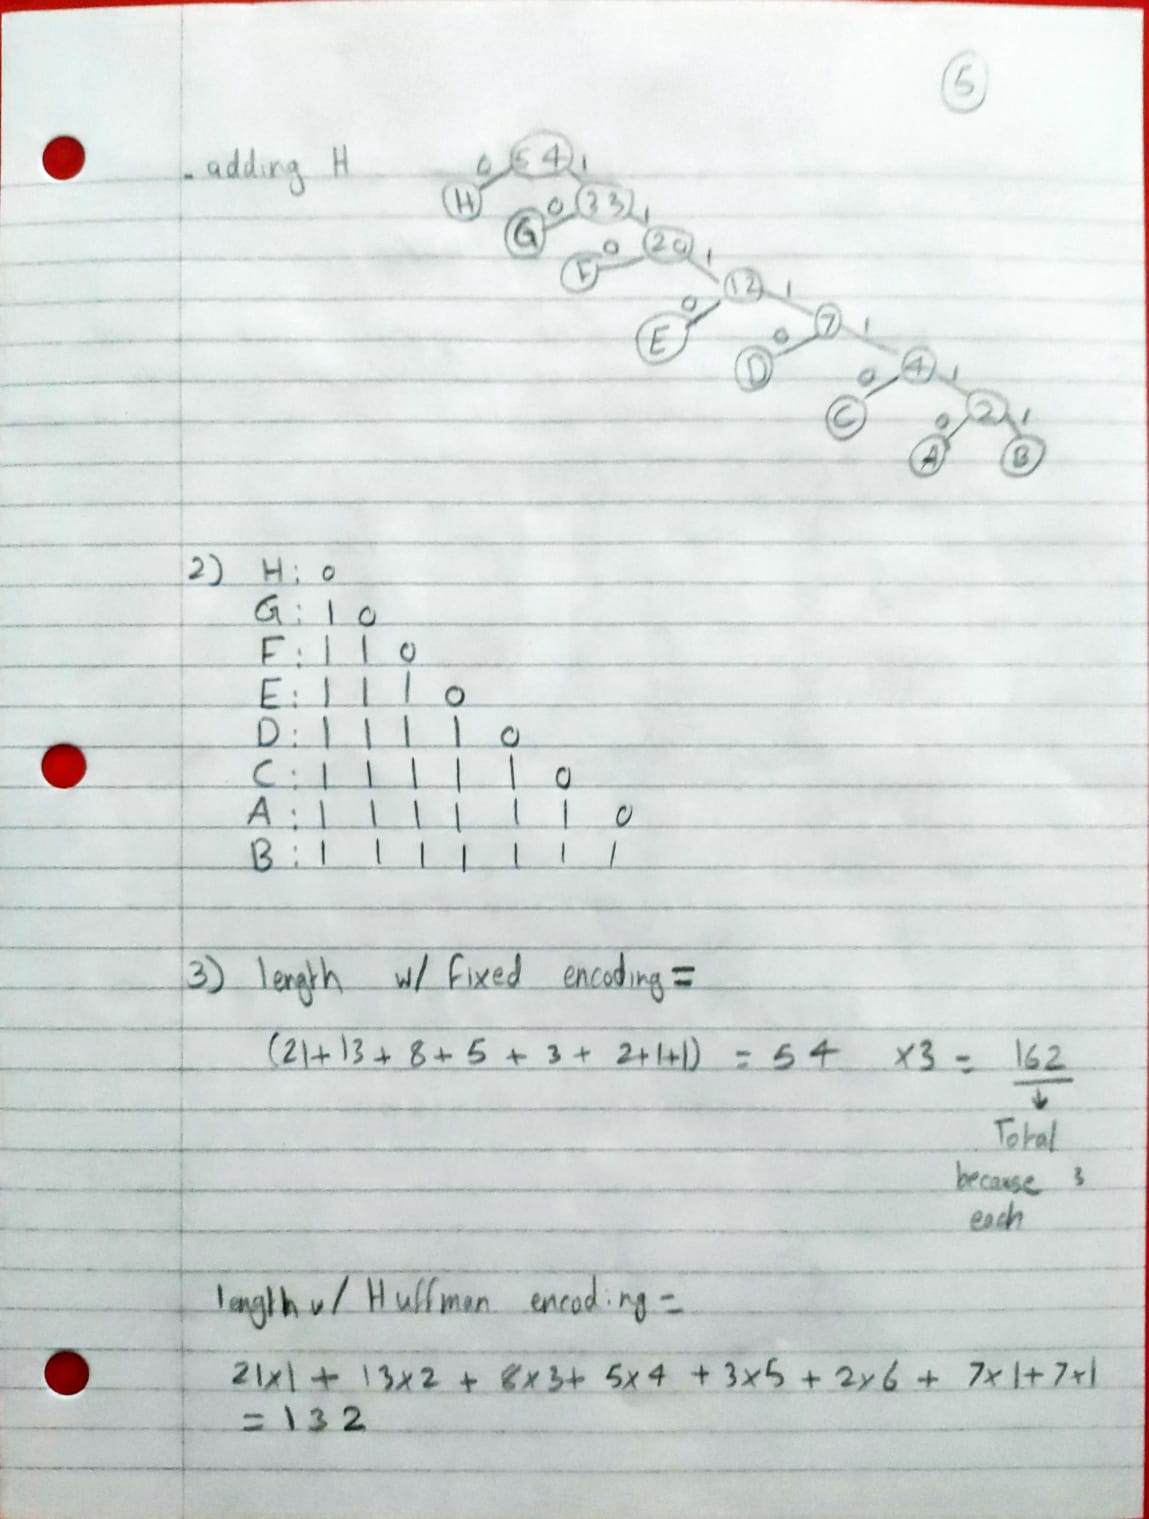 5
- adding H
0 54 1
H 0 33 1
G 0 20 1
F 0 12 1
E 0 7 1
D 0 4 1
C 0 2 1
A B
2) H: 0
G: 1 0
F: 1 1 0
E: 1 1 1 0
D: 1 1 1 1 0
C: 1 1 1 1 1 0
A: 1 1 1 1 1 1 0
B: 1 1 1 1 1 1 1
3) length w/ fixed encoding =
(21+13+8+5+3+2+1+1) = 54 x3 = 162
↓
Total
because 3
each
length w/ Huffman encoding =
21x1 + 13x2 + 8x3+ 5x4 + 3x5 + 2x6 + 7x1+7x1
= 132